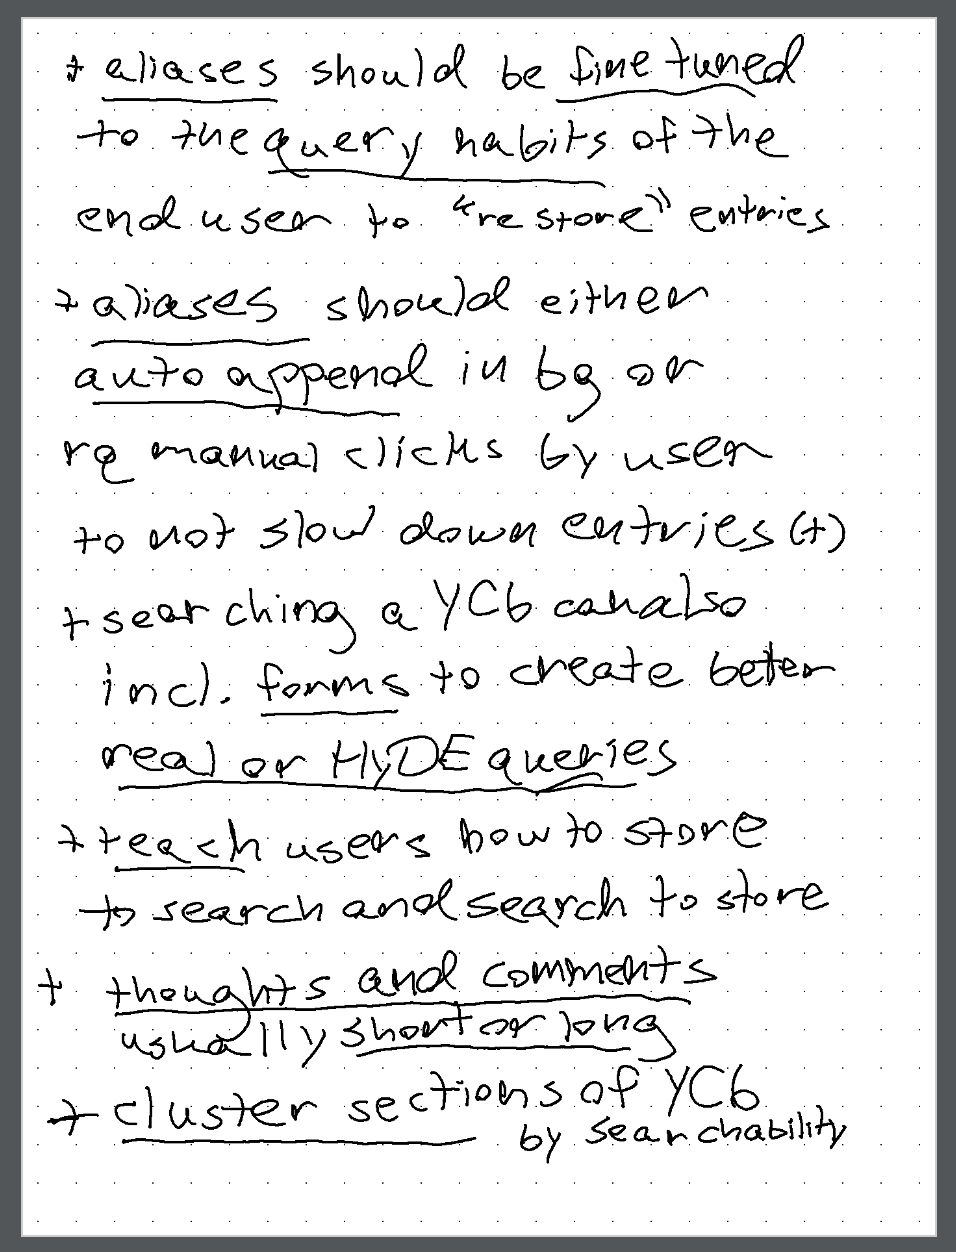 + aliases should be fine tuned
to the query habits of the
end user to "restore" entries
+ aliases should either
auto append in bg or
rq manual clicks by user
to not slow down entries (+)
+ searching a YCb can also
incl. forms to create beter
real or HyDE queries
+ teach users how to store
to search and search to store
+ thoughts and comments
usually short or long
+ cluster sections of YCb
by searchability